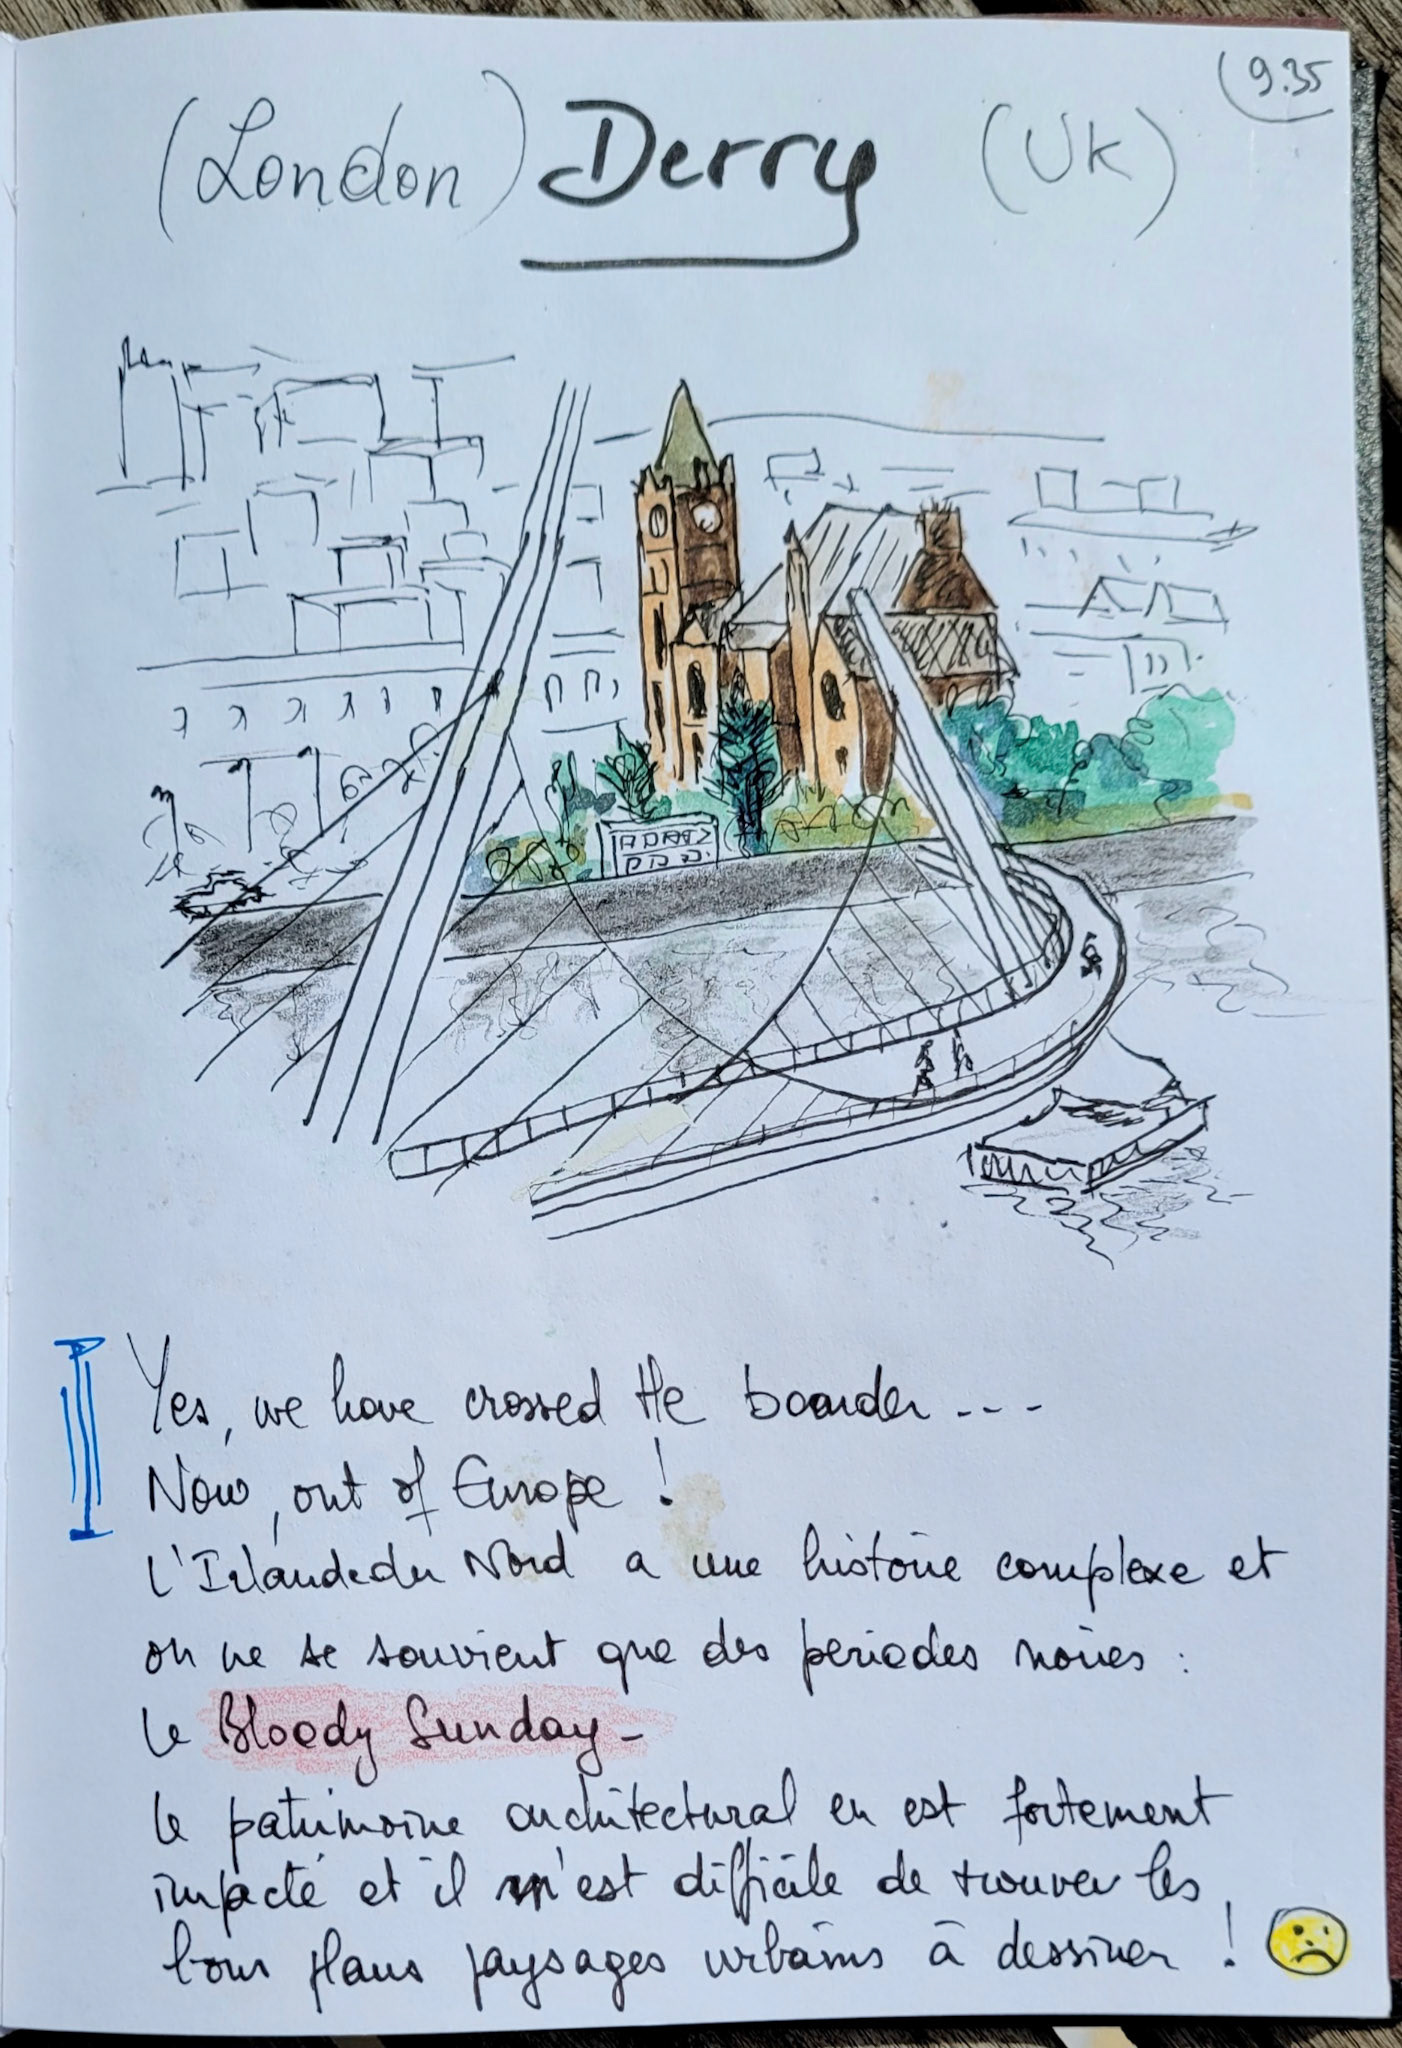 9.35
(London) Derry (UK)
Yes, we have crossed the boarder ---
Now, out of Europe !
L'Irlande du Nord a une histoire complexe et
on ne se souvient que des periodes noires :
le Bloody Sunday -
le patrimoine architectural en est fortement
impacté et il m'est difficile de trouver les
bons plans paysages urbains à dessiner !